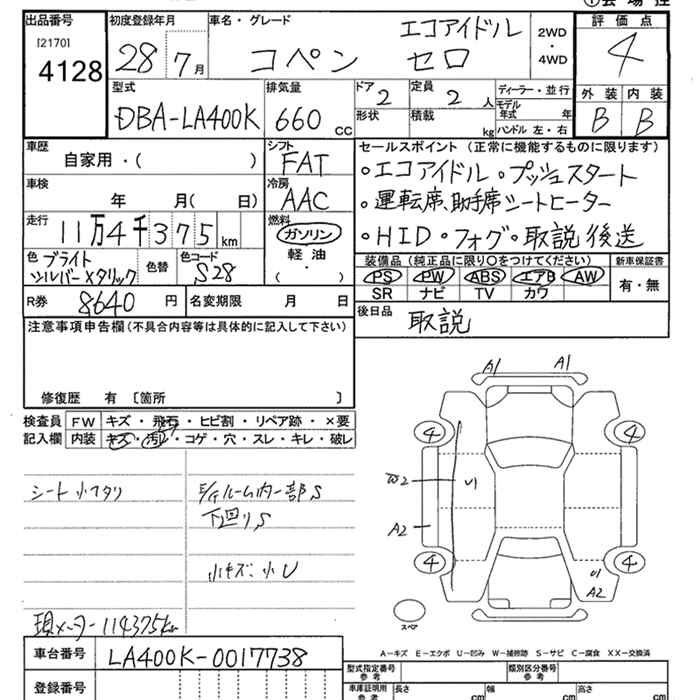 出品番号
[2170]
4128
初度登録年月
28 7月
車名・グレード
エコアイドル
コペン セロ
2WD
・
4WD
評価点
4
型式
DBA-LA400K
排気量
660 cc
ドア
2
定員
2 人
形状
積載
kg
ディーラー・並行
モデル
年式 年
ハンドル 左・右
外装 内装
B B
車歴
自家用・( )
シフト
FAT
車検
年 月( 日)
冷房
AAC
走行
11万4千375km
燃料
ガソリン
軽油
( )
色 ブライト
シルバーメタリック
色替
色コード
S28
R券
8640 円
名変期限 月 日
セールスポイント (正常に機能するものに限ります)
・エコアイドル・プッシュスタート
・運転席、助手席シートヒーター
・HID・フォグ・取説後送
装備品 (純正品に限り○をつけてください)
PS PW ABS エアB AW
SR ナビ TV カワ
新車保証書
有・無
後日品
取説
注意事項申告欄(不具合内容等は具体的に記入して下さい)
修復歴 有 〔箇所 〕
検査員
記入欄
FW キズ・飛石・ヒビ割・リペア跡・×要
内装 キズ・汚レ・コゲ・穴・スレ・キレ・破レ
シート小ヘタリ
ルーム内一部S
下回りS
小キズ・小U
現メーター114375km
A1 A1
4 4
W2 U1
A2
4 4
U1
A2
スペア
A-キズ E-エクボ U-凹み W-補修跡 S-サビ C-腐食 XX-交換済
車台番号
LA400K-0017738
登録番号
型式指定番号
参考
類別区分番号
参考
車庫証明用
参考
長さ cm
幅 cm
高さ cm